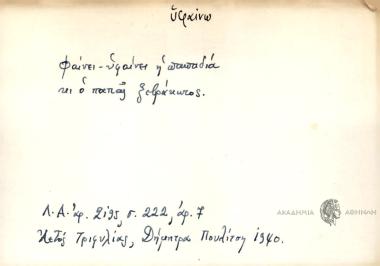 ὑφαίνω
Φαίνει - ὑφαίνει ἡ παπαδιά
κι ὁ παπᾶς ξεβράκωτος.
Λ.Α. ἀρ. 2195, σ. 222, ἀρ. 7
Ἀετός Τριφυλίας, Δήμητρα Πουλίτση 1940.
ΑΚΑΔΗΜΙΑ ΑΘΗΝΩΝ